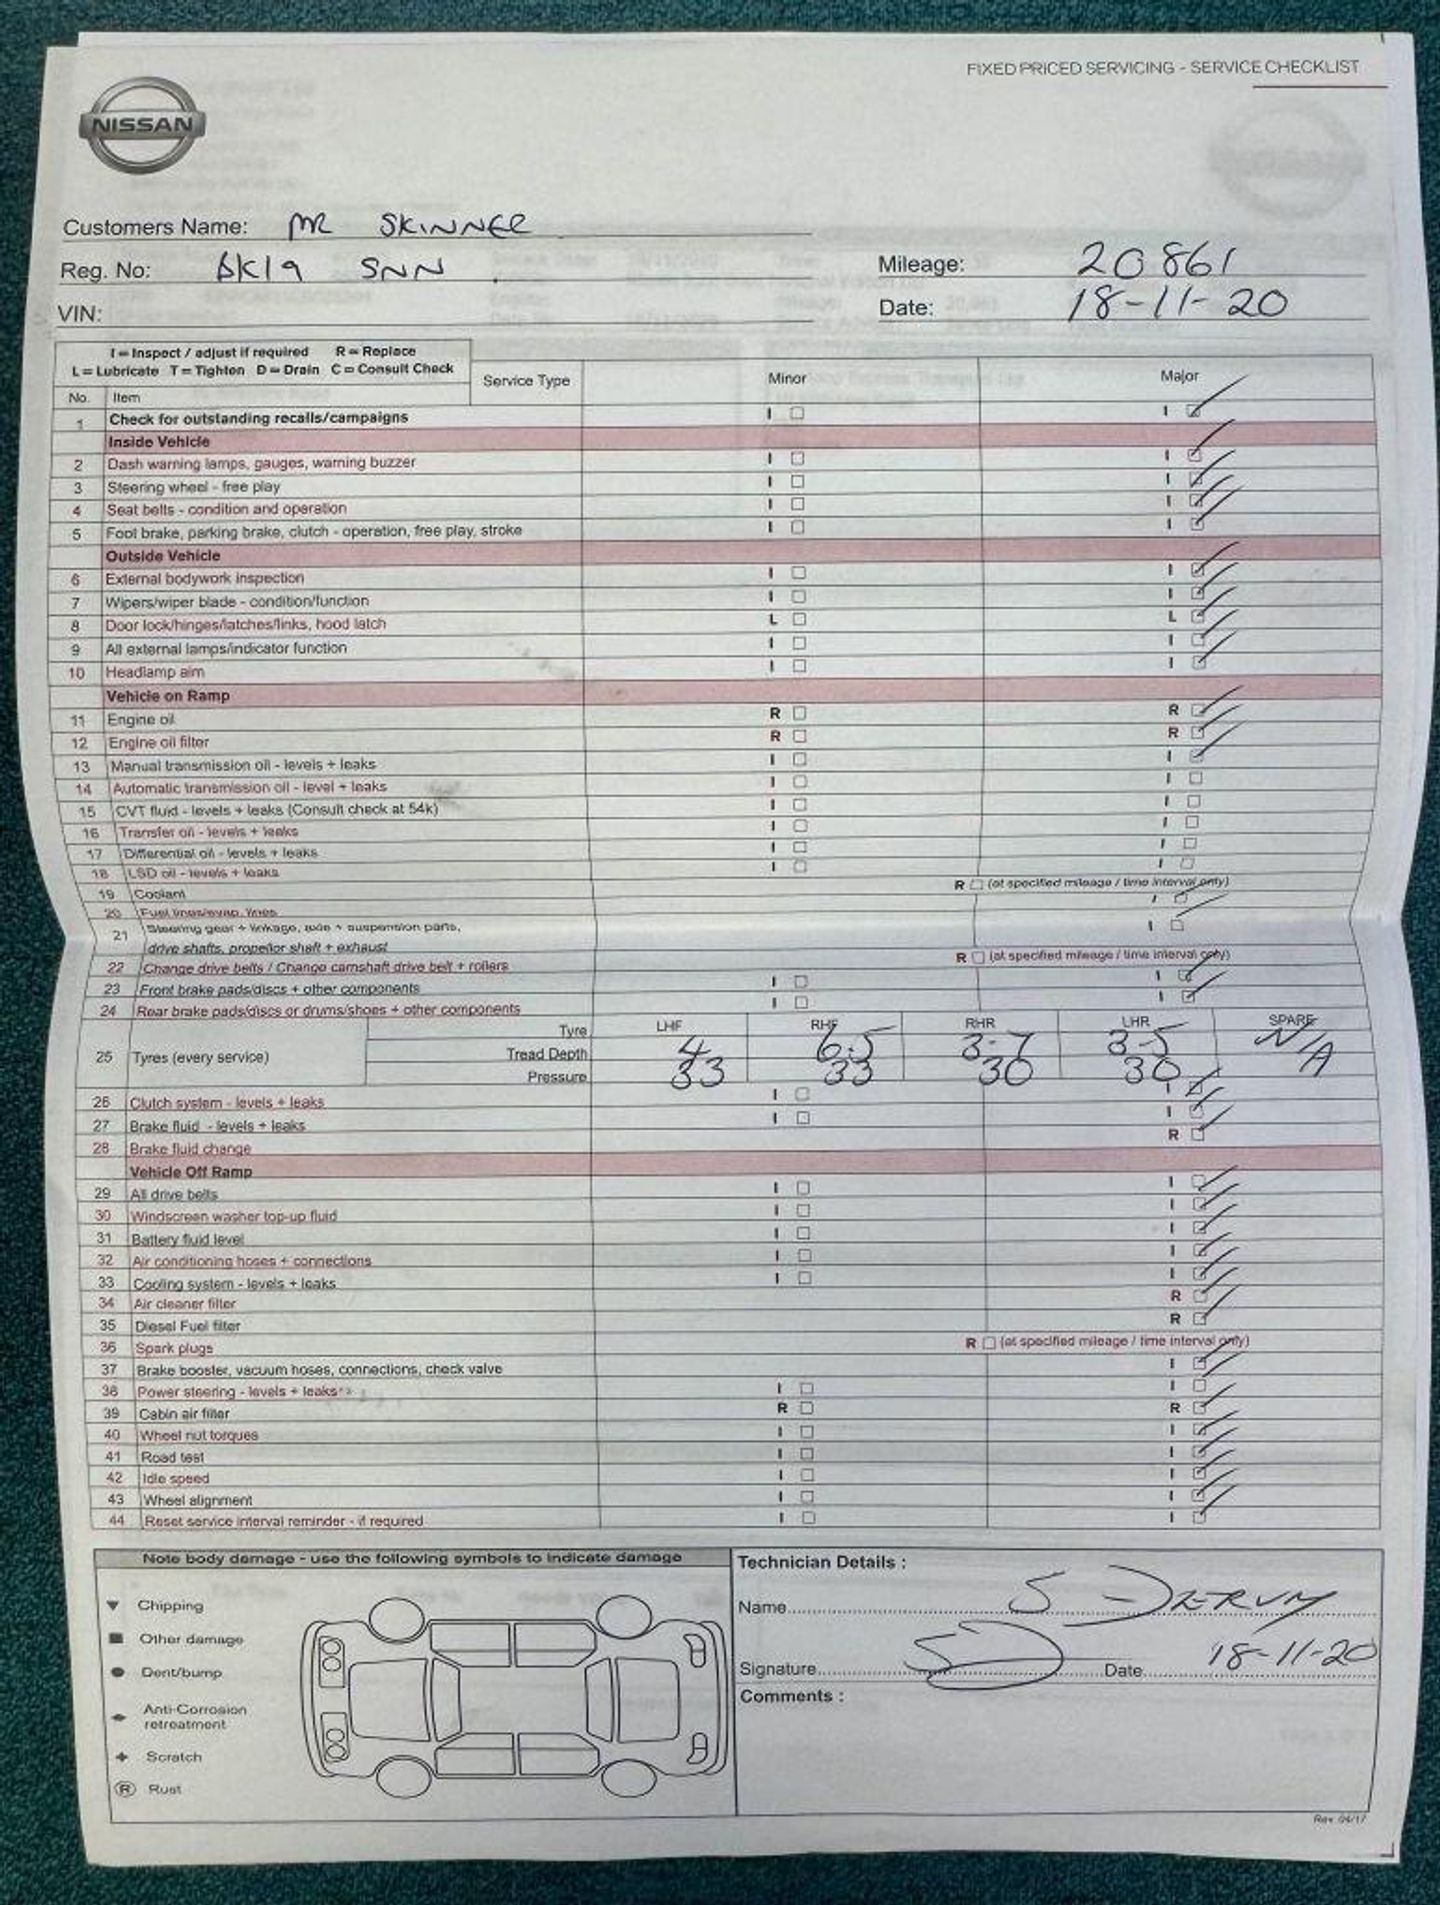 FIXED PRICED SERVICING - SERVICE CHECKLIST
NISSAN
Customers Name: MR SKINNER
Reg. No: BK19 SNN
Mileage: 20861
VIN:
Date: 18-11-20
I = Inspect / adjust if required R = Replace
L = Lubricate T = Tighten D = Drain C = Consult Check
Service Type Minor Major
No. Item
1 Check for outstanding recalls/campaigns I I
Inside Vehicle
2 Dash warning lamps, gauges, warning buzzer I I
3 Steering wheel - free play I I
4 Seat belts - condition and operation I I
5 Foot brake, parking brake, clutch - operation, free play, stroke I I
Outside Vehicle
6 External bodywork inspection I I
7 Wipers/wiper blade - condition/function I I
8 Door lock/hinges/latches/links, hood latch L L
9 All external lamps/indicator function I I
10 Headlamp aim I I
Vehicle on Ramp
11 Engine oil R R
12 Engine oil filter R R
13 Manual transmission oil - levels + leaks I I
14 Automatic transmission oil - level + leaks I I
15 CVT fluid - levels + leaks (Consult check at 54k) I I
16 Transfer oil - levels + leaks I I
17 Differential oil - levels + leaks I I
18 LSD oil - levels + leaks I I
19 Coolant R (at specified mileage / time interval only)
20 Fuel lines/evap. lines I
21 Steering gear + linkage, axle + suspension parts,
drive shafts, propellor shaft + exhaust I
22 Change drive belts / Change camshaft drive belt + rollers R (at specified mileage / time interval only)
23 Front brake pads/discs + other components I I
24 Rear brake pads/discs or drums/shoes + other components I I
25 Tyres (every service)
Tyre LHF RHF RHR LHR SPARE
Tread Depth 4 6.5 3.7 3.5 N/A
Pressure 33 33 30 30
26 Clutch system - levels + leaks I I
27 Brake fluid - levels + leaks I I
28 Brake fluid change R
Vehicle Off Ramp
29 All drive belts I I
30 Windscreen washer top-up fluid I I
31 Battery fluid level I I
32 Air conditioning hoses + connections I I
33 Cooling system - levels + leaks I I
34 Air cleaner filter R
35 Diesel Fuel filter R
36 Spark plugs R (at specified mileage / time interval only)
37 Brake booster, vacuum hoses, connections, check valve I
38 Power steering - levels + leaks I I
39 Cabin air filter R R
40 Wheel nut torques I I
41 Road test I I
42 Idle speed I I
43 Wheel alignment I I
44 Reset service interval reminder - if required I I
Note body damage - use the following symbols to indicate damage
Chipping
Other damage
Dent/bump
Anti-Corrosion
retreatment
Scratch
R Rust
Technician Details :
Name S DERUM
Signature SD Date 18-11-20
Comments :
Rev. 04/17